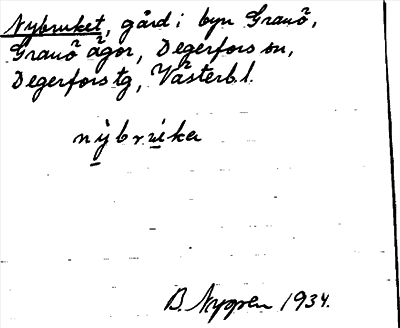 Nybruket, gård i byn Granö,
Granö ägor, Degerfors sn,
Degerfors tg, Västerb. l.
nỳbrùka
B. Nygren 1934.